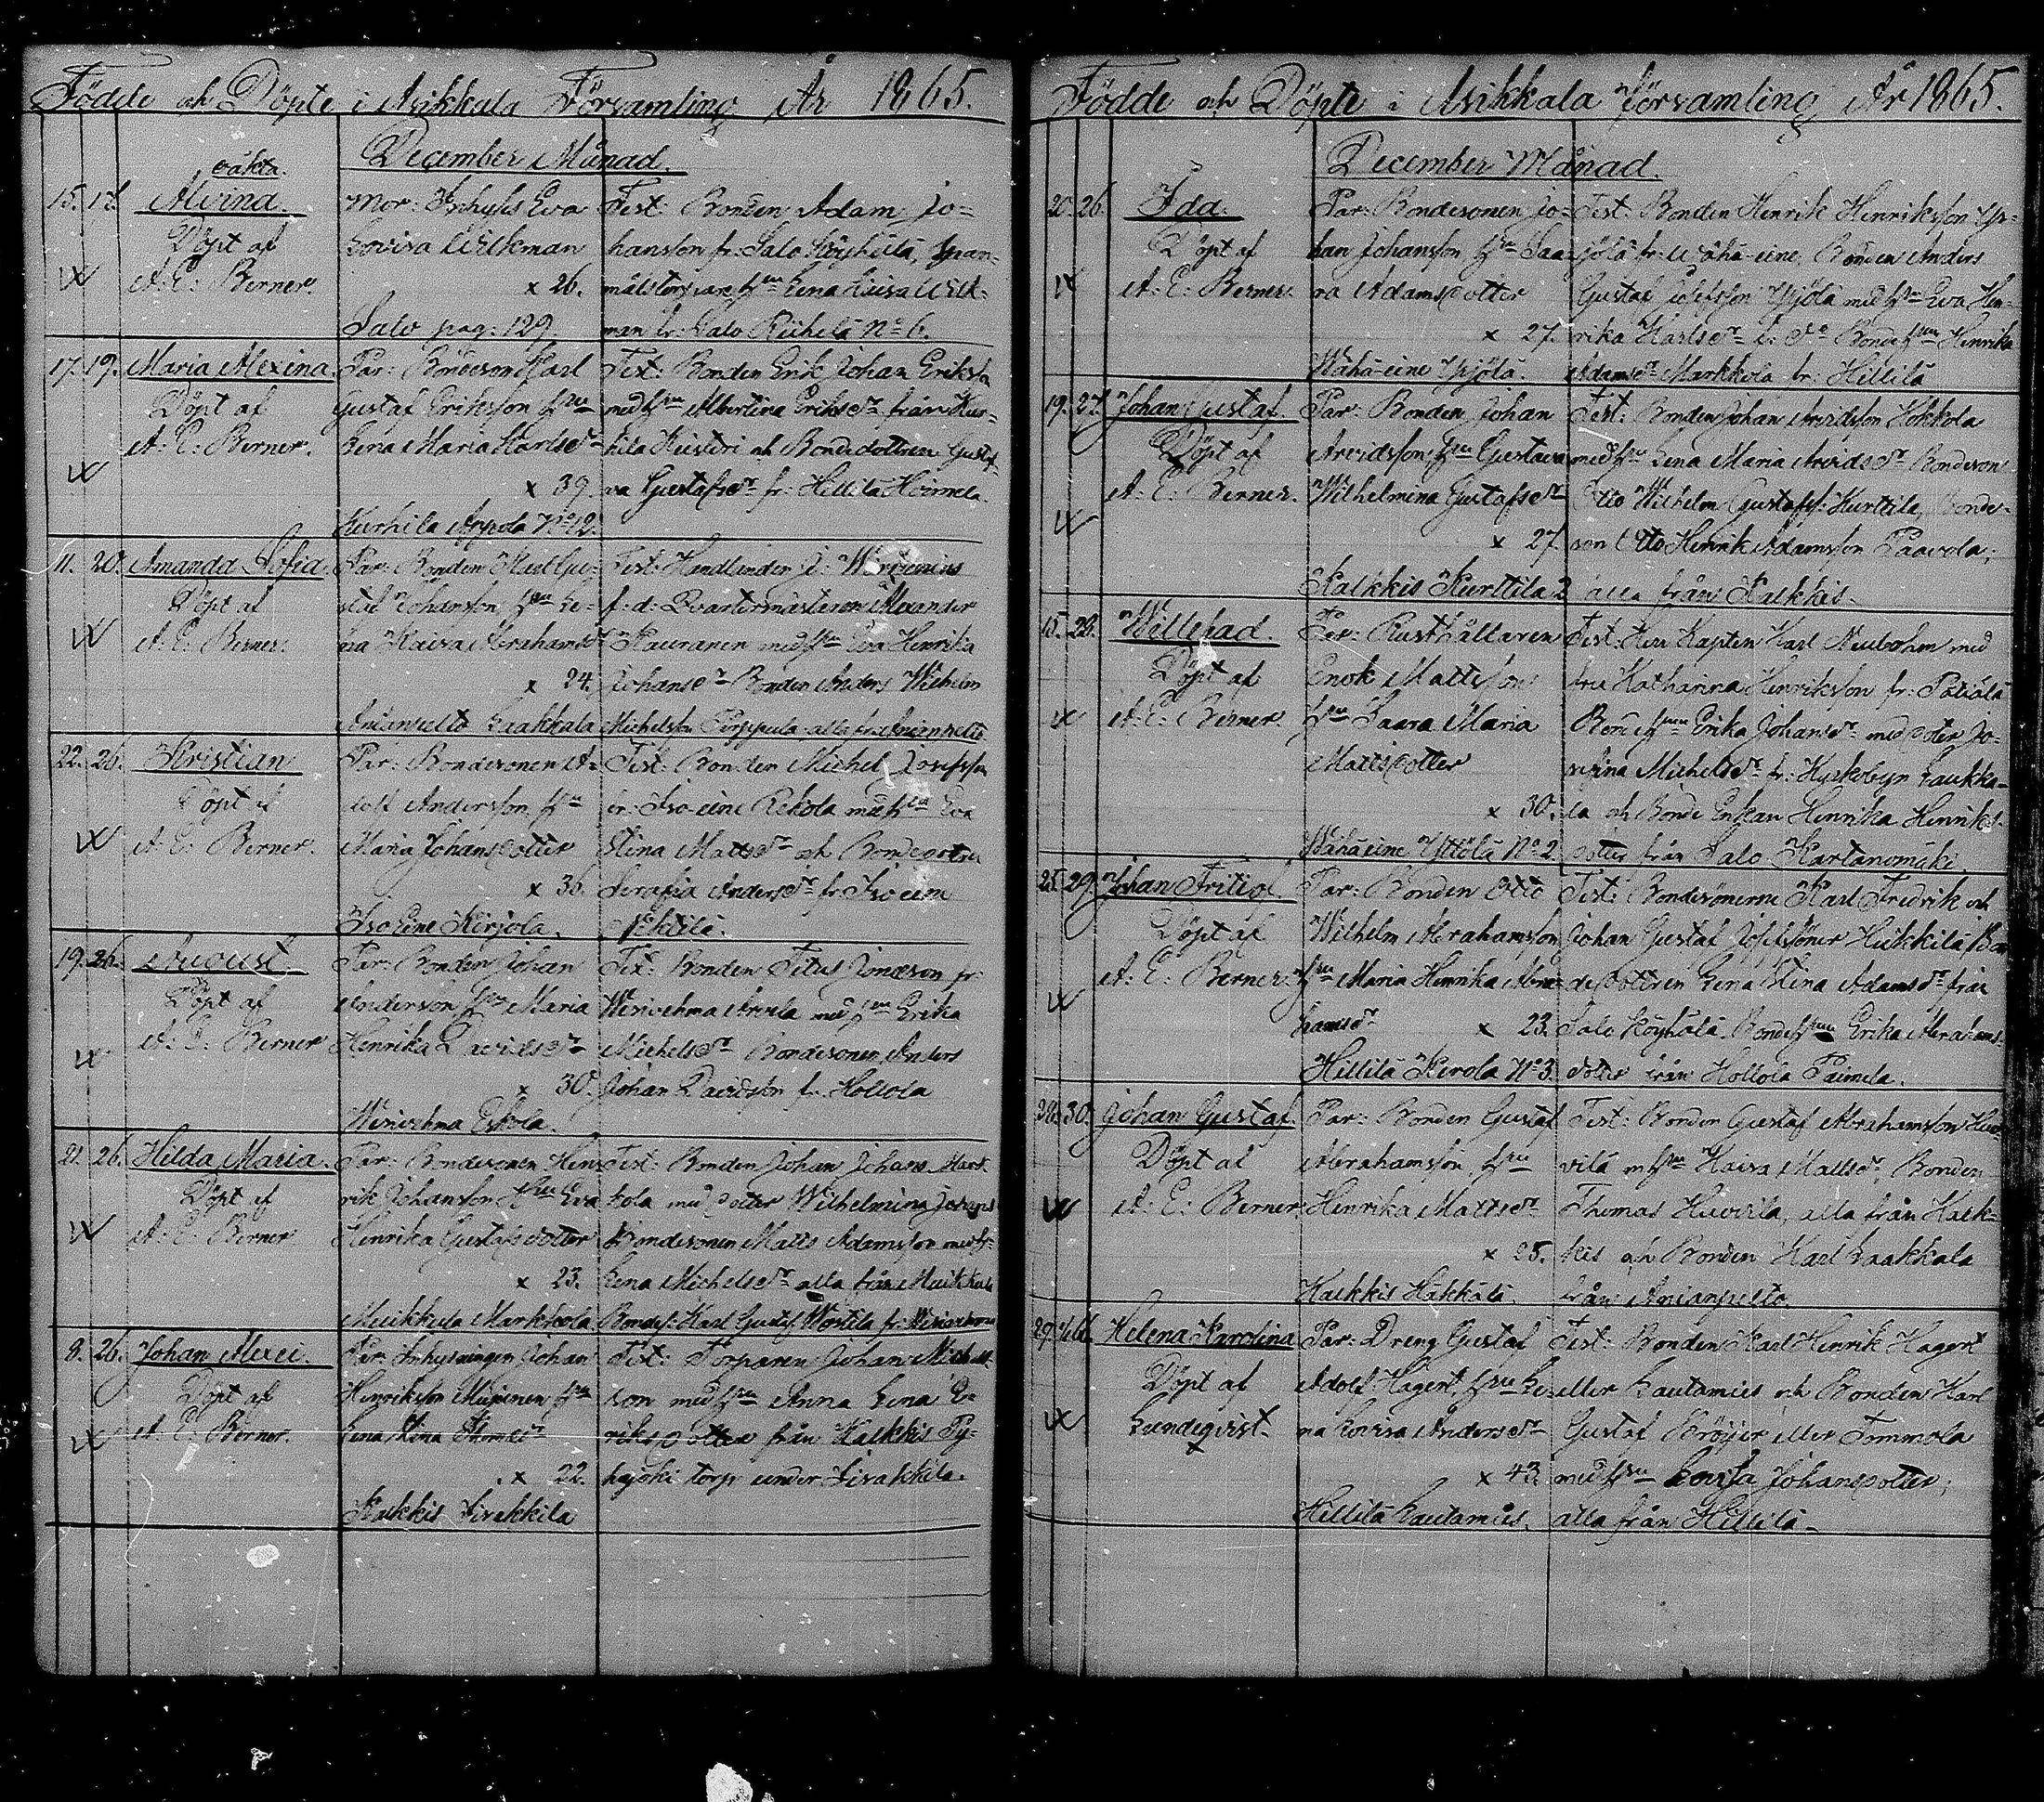 Födde och Döpte i Asikkala Församling År 1865.
December Månad.
oäkta.
15. 17. Alvina.
Döpt af
A: E: Berner.
Mor: Inhyhs Eva
Lovisa Wilkman
x 26.
Salo pag: 129.
Test: Bonden Adam Jo=
hansson fr: Salo Köyhälä,
man fr: Salo N:o 6.
17. 19. Maria Alexina.
Döpt af
A: E: Berner.
Par: Bondeson Karl
Gustaf Eriksson, hru
Lena Maria Karlsdr
x 39.
Kurhila Appola N:o 12.
Test: Bonden Erik Johan Eriksson
med hru Albertina Eriksdr från Kur=
hila och Bondedottren Gusta=
va Gustafsdr fr: Hillilä
11. 20. Amanda Sofia.
Döpt af
A: E: Berner.
Par: Bonden Karl Gu=
staf Johansson, hru Le=
na Kaisa Abrahamsdr
x 24.
Anianpelto Laakkala
Test: Handlanden J:
f: d: Qvartermästaren Alexander
Kauranen med hru Eva Henrika
Johansdr Bonden Anders Wilhelm
Michelsson alla från Anianpelto
22. 26. Kristian
Döpt af
A: E: Berner.
Par: Bondesonen A=
dolf Andersson, hru
Maria Johansdotter
x 36.
Iso Eine Kirjola.
Test: Bonden Michel Josefsson
fr: Iso-eine Rekola med hru Eva
Stina Mattsdr och Bondedottren
Serafia Andersdr fr: Iso eine
19. 26. August.
Döpt af
A: E: Berner
Par: Bonden Johan
Anderson hru Maria
Henrika Davidsdr
x 30.
Wesivehma Eskola.
Test: Bonden Titus Jonæson fr:
Wesivehma Arvela med hru Erika
Michelsdr Bondesonen Anders
Johan Davidsson fr. Hollola
21. 26. Hilda Maria.
Döpt af
A: E: Berner
Par: Bondesonen Hen=
rik Johansson hru Eva
Henrika Gustafsdotter
x 23.
Muikkula Markkola
Test: Bonden Johan Johans. Mark=
kola med dotter Wilhelmina
Bondesonen Matts Adamsson med h=
Lena Michelsdr alla från Muikkula
Bondes: Karl Gustaf fr: Wesivehma
8. 26. Johan Alexei.
Döpt af
A: E: Berner.
Par: Inhysningen Johan
Henriksson hru
Lena Stina Thomædr
x 22.
Kalkkis Iisakkila
Test: Torparen Johan Michels=
son med hru Anna Lena E=
riksdotter från Kalkkis Py=
häjoki torp under Iisakkila.
Födde och Döpte i Asikkala församling År 1865.
December Månad.
20. 26. Ida.
Döpt af
A: E: Berner.
Par: Bondesonen Jo=
han Johansson hru Saa=
ra Adamsdotter
x 27.
Wähä-eine Ypjölä.
Test: Bonden Henrik Henriksson Yp=
jölä fr: Wähä-eine, Bonden Anders
Gustaf Josefsson Ypjölä med hru Eva Hen=
rika Karlsdr Bondehru Henrika
Adamsdr Markkola fr: Hillilä
19. 27. Johan Gustaf.
Döpt af
A: E: Berner.
Par: Bonden Johan
Arvidsson, hru Gustava
Wilhelmina Gustafsdr
x 27.
Kalkkis Kurttila 2
Test: Bonden Johan Arvidsson Hokkola
med hru Lena Maria Arvidsdr Bondeson
Otto Wilhelm Gustafss: Kurttila, Bonde=
son Otto Henrik Adamsson Paavola,
alla från Kalkkis.
15. 28. Willehad.
Döpt af
A: E: Berner.
Par: Rusthållaren
Enok Mattsson
hru Saara Maria
Mattsdotter
x 30.
Wähä eine Yttölä N:o 2.
Test: Herr Kapten Karl med
fru Katharina Henriksson fr:
Bondehru Erika Johansdr med doter Jo=
sefina Michelsdr fr: Kyrkobyn Laukka=
la och Bonde Enkan Henrika Henriks=
dotter från Salo Kartanomäki.
25. 29. Johan Fritiof.
Döpt af
A: E: Berner.
Par: Bonden Otto
Wilhelm Abrahamsson
hru Maria Henrika Abra=
hamsdr x 23.
Hillilä Kirola N:o 3.
Test: Bondesönerne Karl Fredrik och
Johan Gustaf Josefssöner Heikkilä Bon=
dedottren Lena Stina Adamsdr från
Salo Köyhälä. Bondehru Erika Abrahams=
dotter från Hollola Paimela.
28. 30. Johan Gustaf.
Döpt af
A: E: Berner
Par: Bonden Gustaf
Abrahamsson, hru
Henrika Mattsdr
x 25.
Kalkkis Häkkälä.
Test: Bonden Gustaf Abrahamsson
vilä m hru Kaisa Mattsdr, Bonden
Thomas alla från Kalk=
kis och Bonden Karl Laakkala
från Anianpelto.
29. Helena Karolina
Döpt af
Lundeqvist.
Par: Dreng Gustaf
Adolf Hagert, hru Le=
na Lovisa Andersdr
x 43.
Hillilä Lautamies.
Test: Bonden Karl Henrik Hagert
eller Lautamies och Bonden Karl
Gustaf Kröijer eller Tommola
med hru Lovisa Johansdotter,
alla från Hillilä.